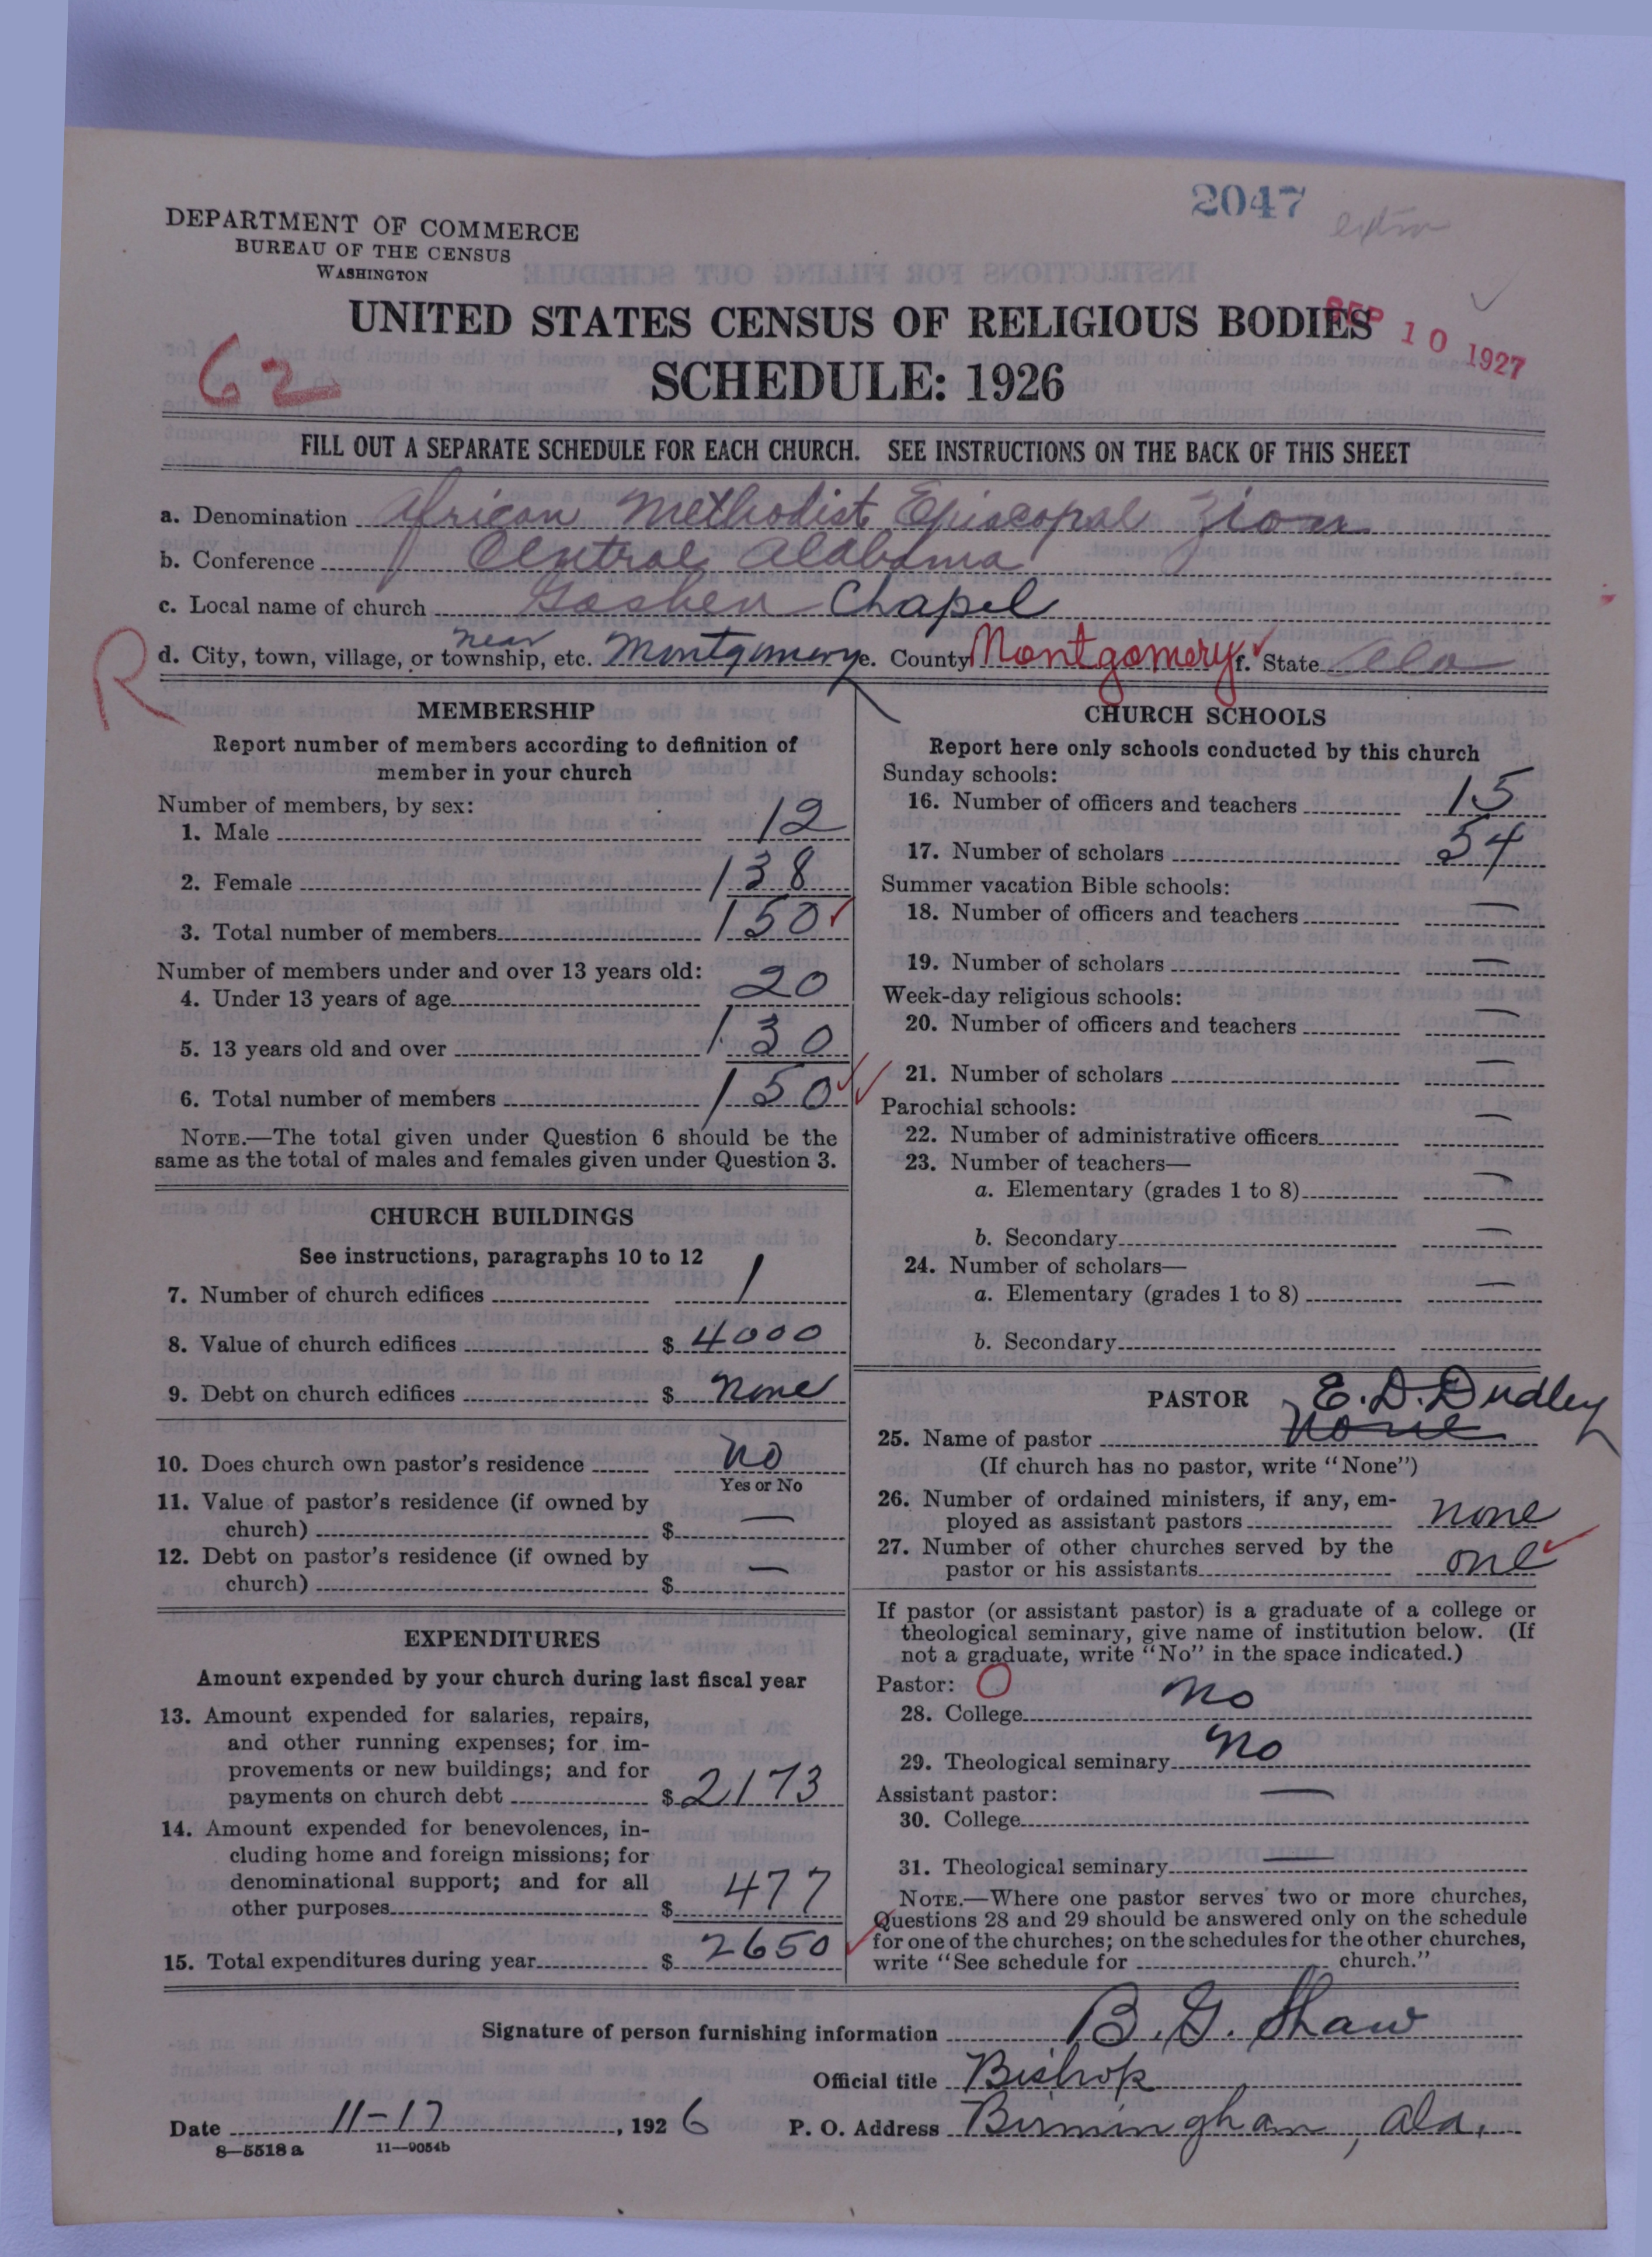 2047 extra
DEPARTMENT OF COMMERCE
BUREAU OF THE CENSUS
WASHINGTON
UNITED STATES CENSUS OF RELIGIOUS BODIES
SEP 10 1927
62
SCHEDULE: 1926
FILL OUT A SEPARATE SCHEDULE FOR EACH CHURCH. SEE INSTRUCTIONS ON THE BACK OF THIS SHEET
a. Denomination African Methodist Episcopal Zion
b. Conference Central Alabama
c. Local name of church Goshen Chapel
R
d. City, town, village, or township, etc. near Montgomery e. County Montgomery f. State Ala
MEMBERSHIP
Report number of members according to definition of
member in your church
Number of members, by sex:
1. Male 12
2. Female 138
3. Total number of members 150
Number of members under and over 13 years old:
4. Under 13 years of age 20
5. 13 years old and over 130
6. Total number of members 150
NOTE.—The total given under Question 6 should be the
same as the total of males and females given under Question 3.
CHURCH BUILDINGS
See instructions, paragraphs 10 to 12
7. Number of church edifices 1
8. Value of church edifices $ 4000
9. Debt on church edifices $ none
10. Does church own pastor's residence no
Yes or No
11. Value of pastor's residence (if owned by
church) $ —
12. Debt on pastor's residence (if owned by
church) $ —
EXPENDITURES
Amount expended by your church during last fiscal year
13. Amount expended for salaries, repairs,
and other running expenses; for im-
provements or new buildings; and for
payments on church debt $ 2173
14. Amount expended for benevolences, in-
cluding home and foreign missions; for
denominational support; and for all
other purposes $ 477
15. Total expenditures during year $ 2650
CHURCH SCHOOLS
Report here only schools conducted by this church
Sunday schools:
16. Number of officers and teachers 15
17. Number of scholars 54
Summer vacation Bible schools:
18. Number of officers and teachers —
19. Number of scholars —
Week-day religious schools:
20. Number of officers and teachers —
21. Number of scholars —
Parochial schools:
22. Number of administrative officers —
23. Number of teachers—
a. Elementary (grades 1 to 8) —
b. Secondary —
24. Number of scholars—
a. Elementary (grades 1 to 8) —
b. Secondary
PASTOR E. D. Dudley
25. Name of pastor None
(If church has no pastor, write "None")
26. Number of ordained ministers, if any, em-
ployed as assistant pastors none
27. Number of other churches served by the
pastor or his assistants one
If pastor (or assistant pastor) is a graduate of a college or
theological seminary, give name of institution below. (If
not a graduate, write "No" in the space indicated.)
Pastor: O
28. College no
29. Theological seminary no
Assistant pastor:
30. College —
31. Theological seminary —
NOTE.—Where one pastor serves two or more churches,
Questions 28 and 29 should be answered only on the schedule
for one of the churches; on the schedules for the other churches,
write "See schedule for church."
Signature of person furnishing information B. G. Shaw
Official title Bishop
Date 11-17, 1926 P. O. Address Birmingham, Ala.
8—5518 a 11—9054b